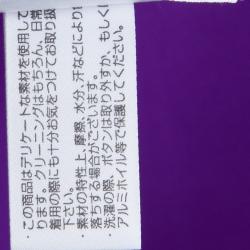 ・この商品はデリケートな素材を使用して
ります。クリーニングはもちろん、日常
着用の際にも十分お気をつけてお取り扱
下さい。
・素材の特性上、摩擦、水分、汗などにより
落ちする場合がございます。
・洗濯の際、ボタンは取り外すか、もしく
アルミホイル等で保護してください。